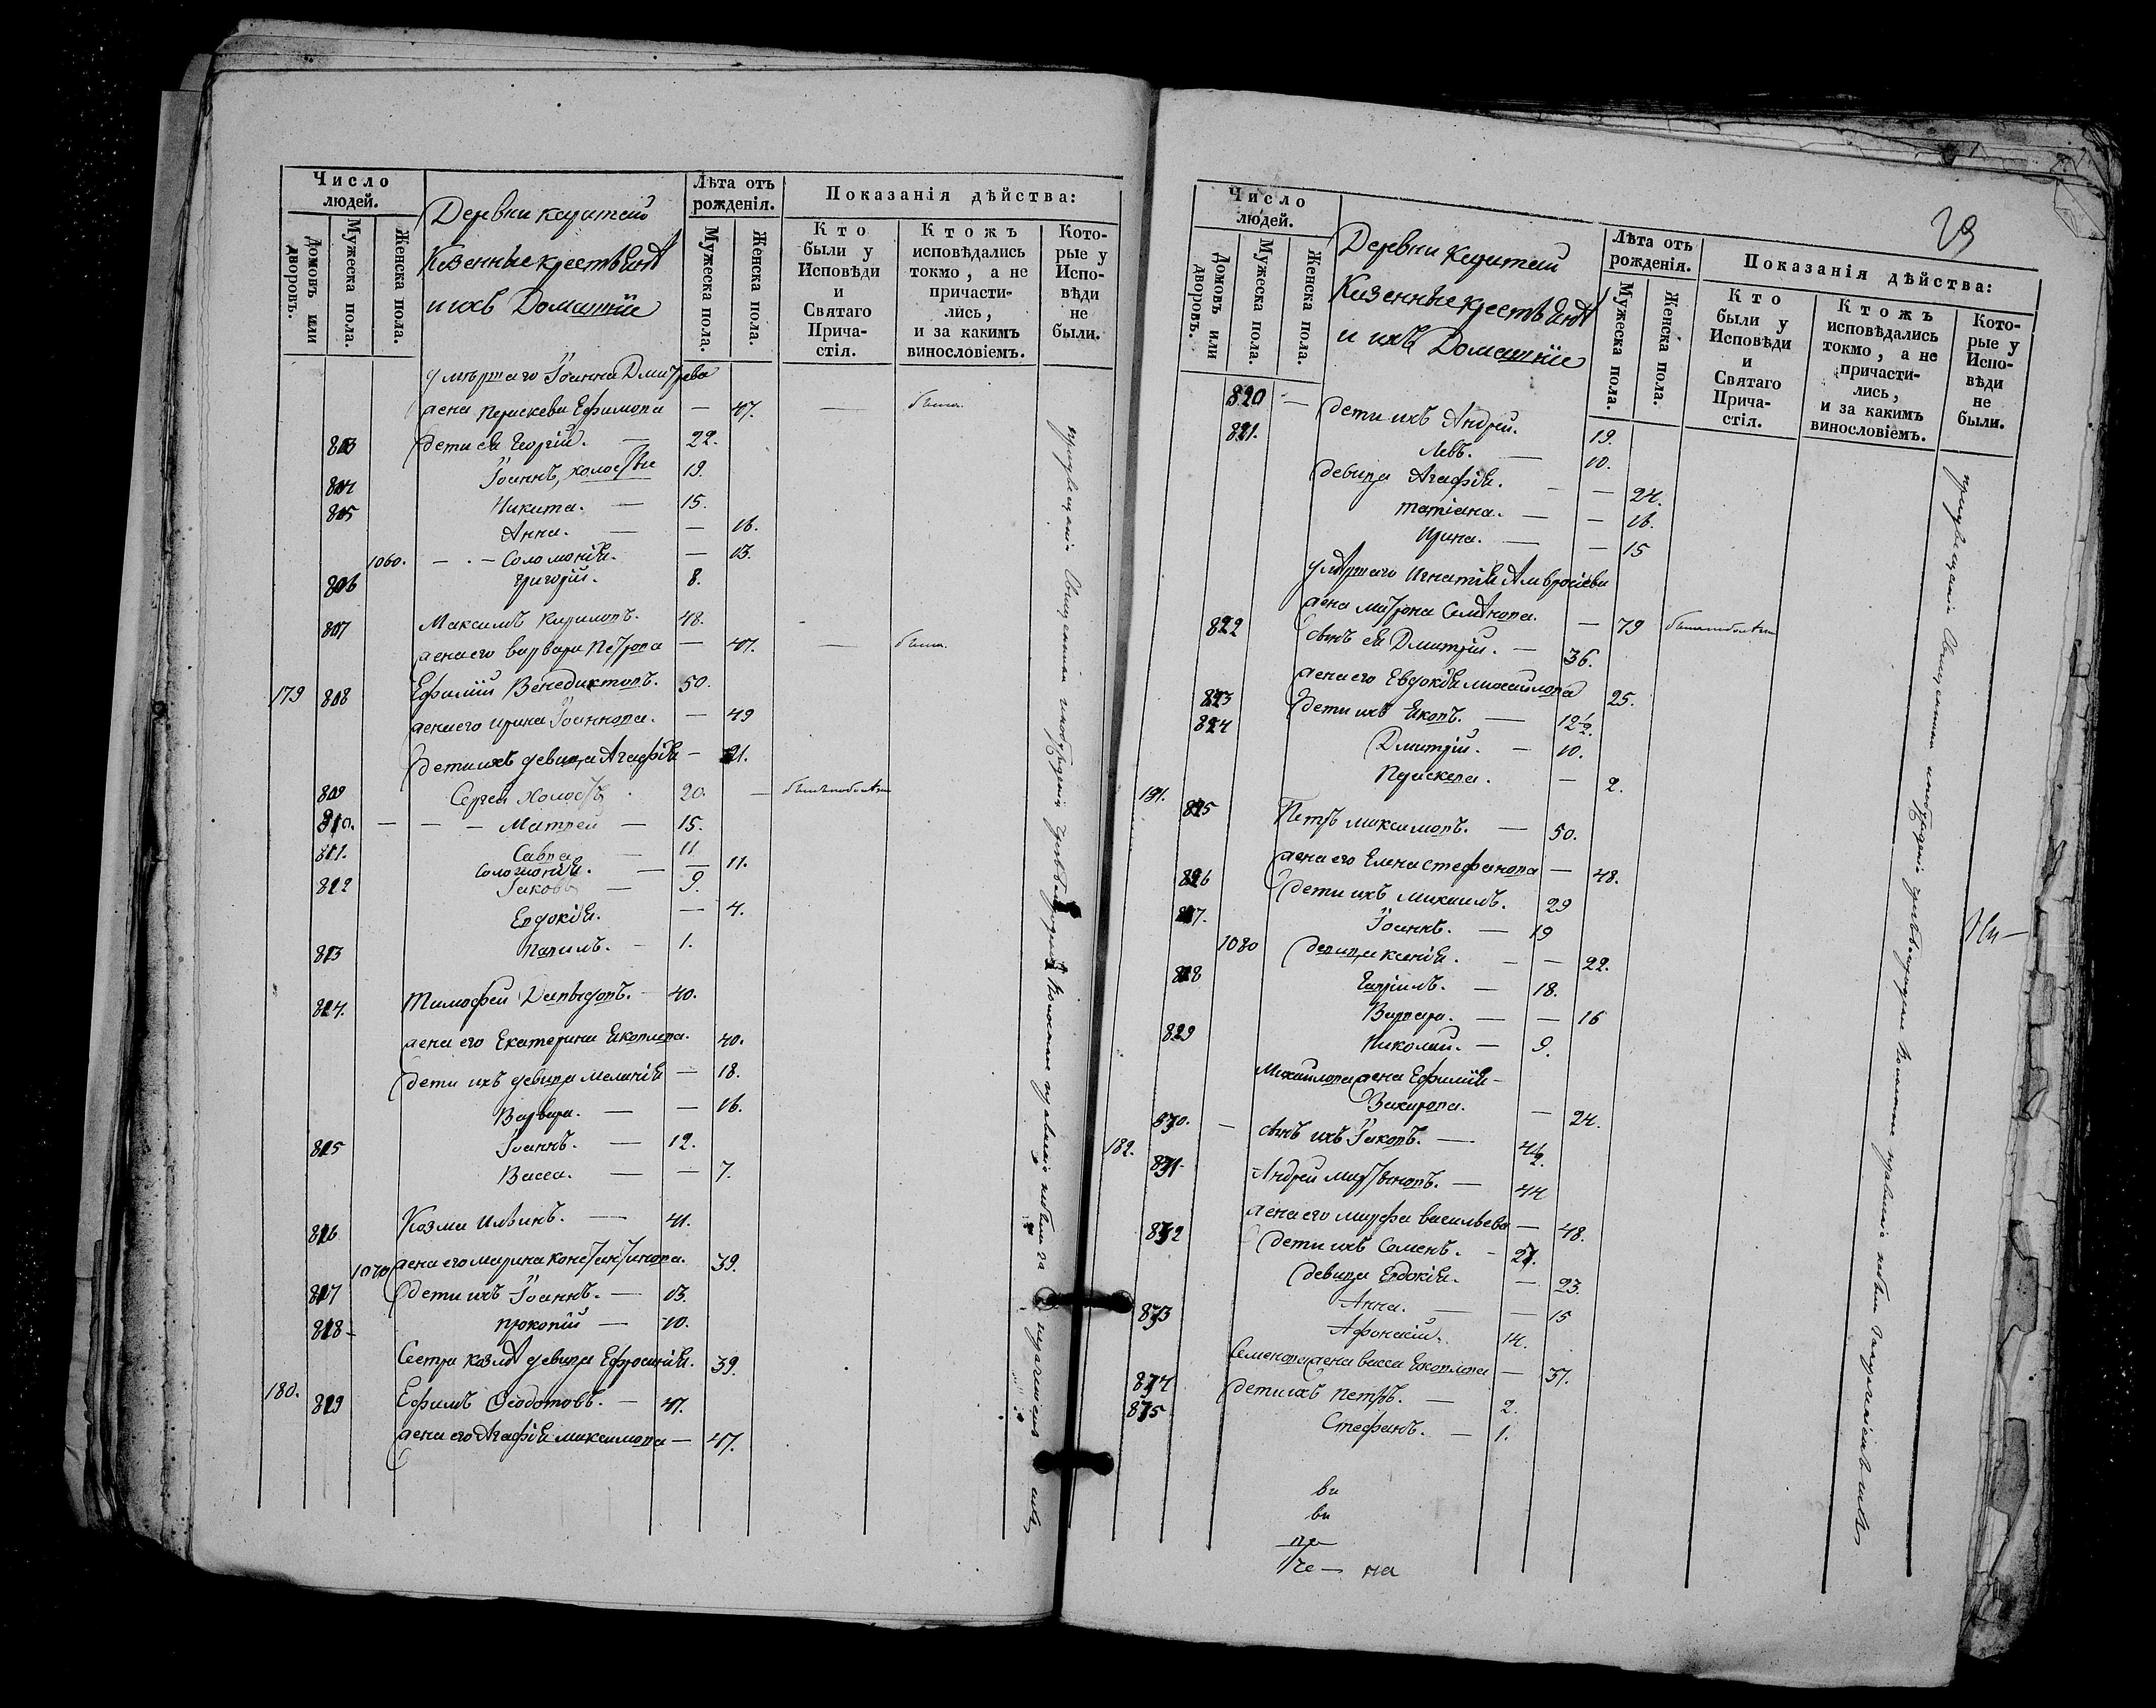 Число людей.
Домовъ или дворовъ.
Мужеска пола.
Женска пола.
Деревни
Казенные крестьяня
и ихъ Домашнiе
Лѣта отъ рожденія.
Мужеска пола.
Женска пола.
Показанія дѣйства:
Кто были у Исповѣди и Святаго Прича-стія.
Ктожъ исповѣдались токмо, а не причасти-лись, и за какимъ винословіемъ.
Кото-рые у Испо-вѣди не были.
умершаго Iоанна Дмитрева
жена Параскева Ефимова — 47. — была
803 дети ея Георгiй. — 22.
804 Iоаннъ, холосты 19.
805 Никита. — 15.
Анна. — — 16.
1060. — Соломонiя. — 13.
806 Григорiй. 8.
807 Максимъ Кириловъ. 48.
жена его Варвара Петрова — 47. — была.
179 808 Ефимiй Венедиктовъ. 50.
жена его Ирина Iоаннова. — 49
дети ихъ девица Агафiя — 21.
809 Сергей Холостъ 20. —
810. — — — Матвей — 15.
811. Савва — 11
Соломонiя. — — 11.
812 Iаковъ — 9.
Евдокiя. — 4.
813 Павилъ. — 1.
814. Тимофей Давыдовъ. — 40.
жена его Екатерина Яковлева. 40.
дети ихъ девица Меланiя — 18.
Варвара. — — 16.
815 Iоаннъ. — 12.
Васса. — — 7.
816 Козма Ильинъ. — 41.
1070 жена его Марина Константинова. 39.
817 дети ихъ Iоаннъ. — 13.
818 — Прокопiй — 10.
Сестра Козмы девица Ефросинiя. 39.
180. 819 Ефимъ Феодотовъ. — 47.
жена его Агафiя Максимова — 47.
29
Число людей.
Домовъ или дворовъ.
Мужеска пола.
Женска пола.
Деревни
Казенные крестьяня
и ихъ Домашнiе
Лѣта отъ рожденія.
Мужеска пола.
Женска пола.
Показанія дѣйства:
Кто были у Исповѣди и Святаго Прича-стія.
Ктожъ исповѣдались токмо, а не причасти-лись, и за какимъ винословіемъ.
Кото-рые у Испо-вѣди не были.
820 — дети ихъ Андрей. 19.
821. Левъ. — 10.
девица Агафiя. — — 24.
Татiана. — — 16.
Ирина. — — 15
умершаго Игнатiя Амвросiева
жена Матрона Семенова. — 79
822 сынъ ея Дмитрiй. — 36.
жена его Евдокiя Михайлова 25.
823 дети ихъ Яковъ. — 12½.
824 Дмитрiй. — 10.
Праскева. — 2.
181. 825 Петръ Максимовъ. — 50.
жена его Елена Стефанова — 48.
826 дети ихъ Михаилъ. 29
827. Iоаннъ. — 19
1080 девица Ксенiя. — — 22.
828 Гаврiилъ. — 18.
Варвара. — — 16
829 Николай. — 9.
Михайлова жена Ефимiя —
Захарова. — 24.
830. — сынъ ихъ Iаковъ. —
182. 831. Андрей Мартыновъ. — 44
жена его Марфа Васильева — 48.
832 дети ихъ Семенъ. — 27.
девица Евдокiя. — 23.
Анна. — — 15
833 Афонасiй. 14.
Семенова жена Васса Яковлева — 37.
834 дети ихъ Петръ. — 2.
835 Стефанъ. — 1.